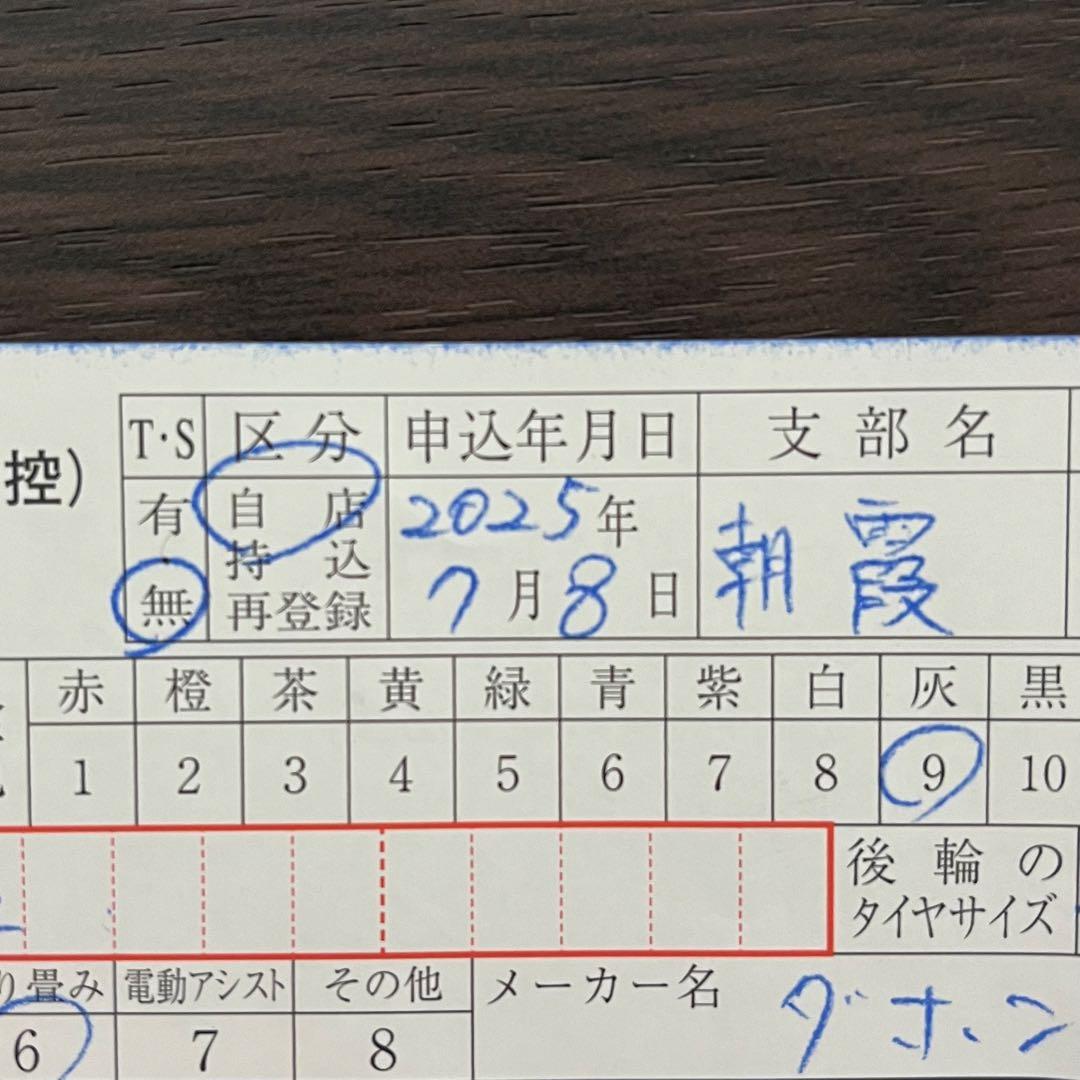 控)
T・S 区分 申込年月日 支部名
有・無 自店 2025年 朝霞
持込 7月8日
再登録
赤 橙 茶 黄 緑 青 紫 白 灰 黒
1 2 3 4 5 6 7 8 9 10
後輪の
タイヤサイズ
り畳み 電動アシスト その他 メーカー名
6 7 8 ダホン